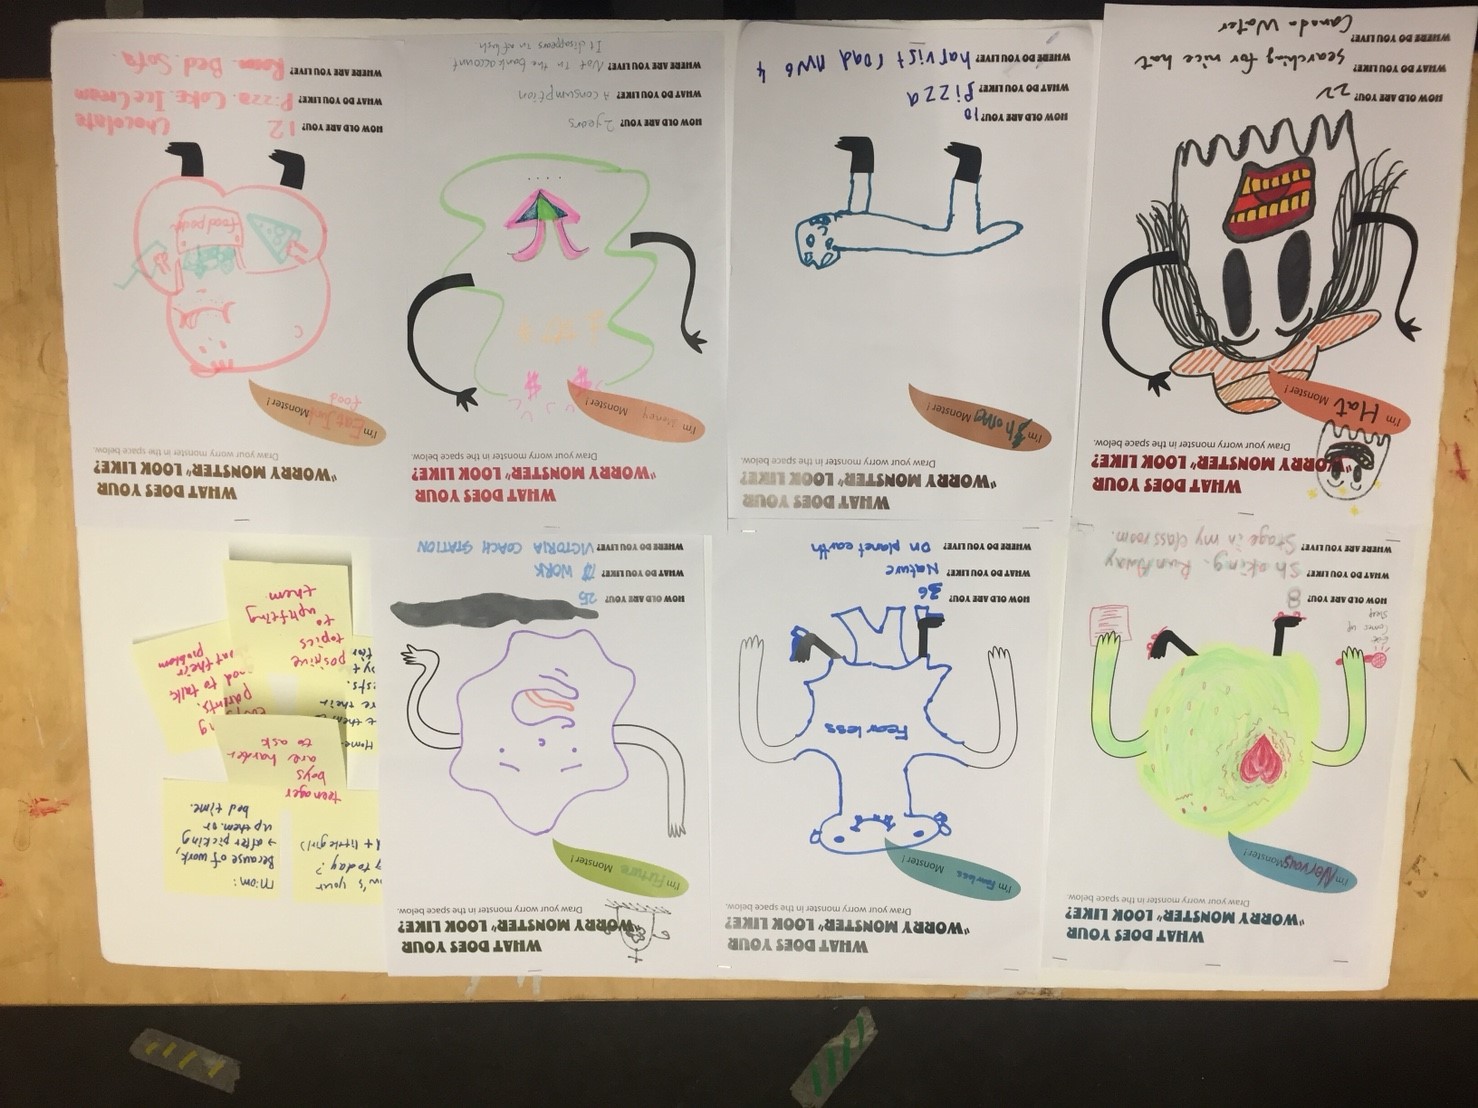 WHAT DOES YOUR
"WORRY MONSTER" LOOK LIKE?
Draw your worry monster in the space below.
I'm Nervous Monster!
comes up
HOW OLD ARE YOU? 8
WHAT DO YOU LIKE? Shaking. Run Away
WHERE ARE YOU LIVE? Stage in my classroom.
WHAT DOES YOUR
"WORRY MONSTER" LOOK LIKE?
Draw your worry monster in the space below.
I'm Fearless Monster!
Fearless
HOW OLD ARE YOU? 36
WHAT DO YOU LIKE? Nature
WHERE DO YOU LIVE? On planet earth
WHAT DOES YOUR
"WORRY MONSTER" LOOK LIKE?
Draw your worry monster in the space below.
I'm Future Monster!
HOW OLD ARE YOU? 25
WHAT DO YOU LIKE? WORK
WHERE DO YOU LIVE? VICTORIA COACH STATION
w's your
today?
+ little girl)
Mom:
Because of work,
→ after picking
up them or
bed time.
teenager
boys
are harder
to ask
Home
t them
re their
sts.
parents.
to talk
their
problem
positive
topics
to uplifting
them.
WHAT DOES YOUR
"WORRY MONSTER" LOOK LIKE?
Draw your worry monster in the space below.
I'm Hat Monster!
HOW OLD ARE YOU? 22
WHAT DO YOU LIKE? searching for nice hat
WHERE DO YOU LIVE? Canada Water
WHAT DOES YOUR
"WORRY MONSTER" LOOK LIKE?
Draw your worry monster in the space below.
I'm Monster!
HOW OLD ARE YOU? 10
WHAT DO YOU LIKE? Pizza
WHERE DO YOU LIVE? harvist road nw6 4
WHAT DOES YOUR
"WORRY MONSTER" LOOK LIKE?
Draw your worry monster in the space below.
I'm Money Monster!
HOW OLD ARE YOU? 2 years
WHAT DO YOU LIKE? A consumption
WHERE ARE YOU LIVE? Not in the bank account.
It disappears in a flash.
WHAT DOES YOUR
"WORRY MONSTER" LOOK LIKE?
Draw your worry monster in the space below.
I'm Eat Junk Monster!
food
foodpada
HOW OLD ARE YOU? 12 Chocolate
WHAT DO YOU LIKE? Pizza. Coke. Ice Cream
WHERE ARE YOU LIVE? Room. Bed. Sofa.